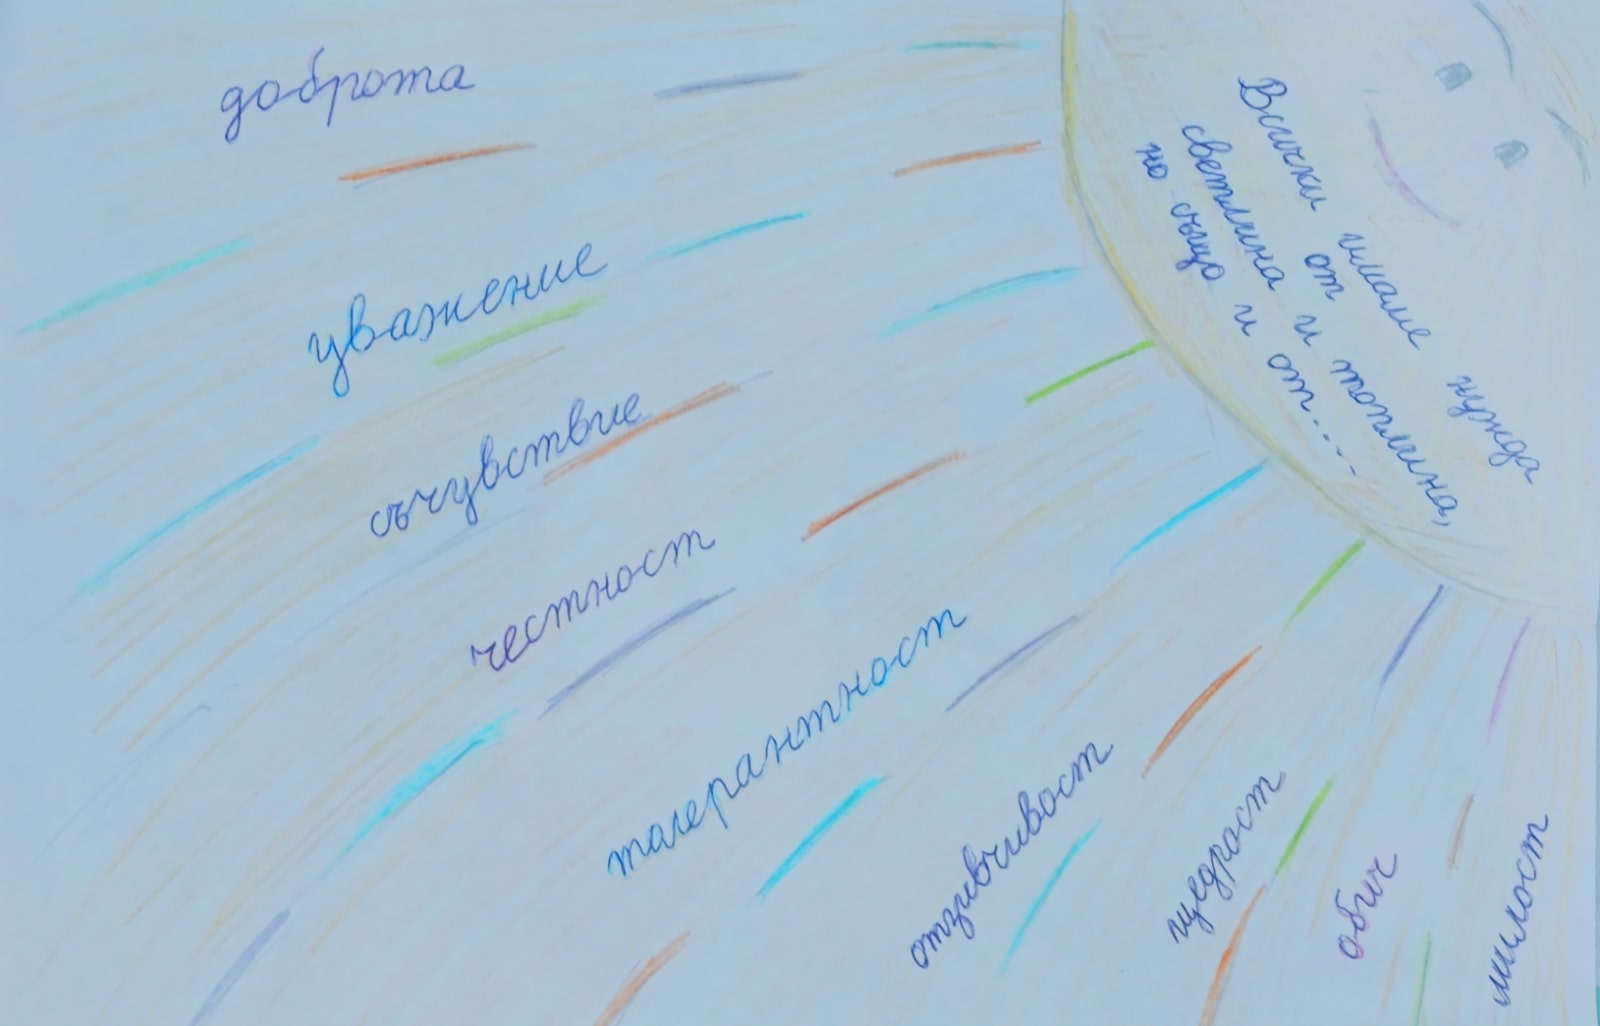 Всички имаме нужда
от
светлина и топлина,
но също и от....
доброта
уважение
съчувствие
честност
толерантност
отзивчивост
щедрост
обич
милост